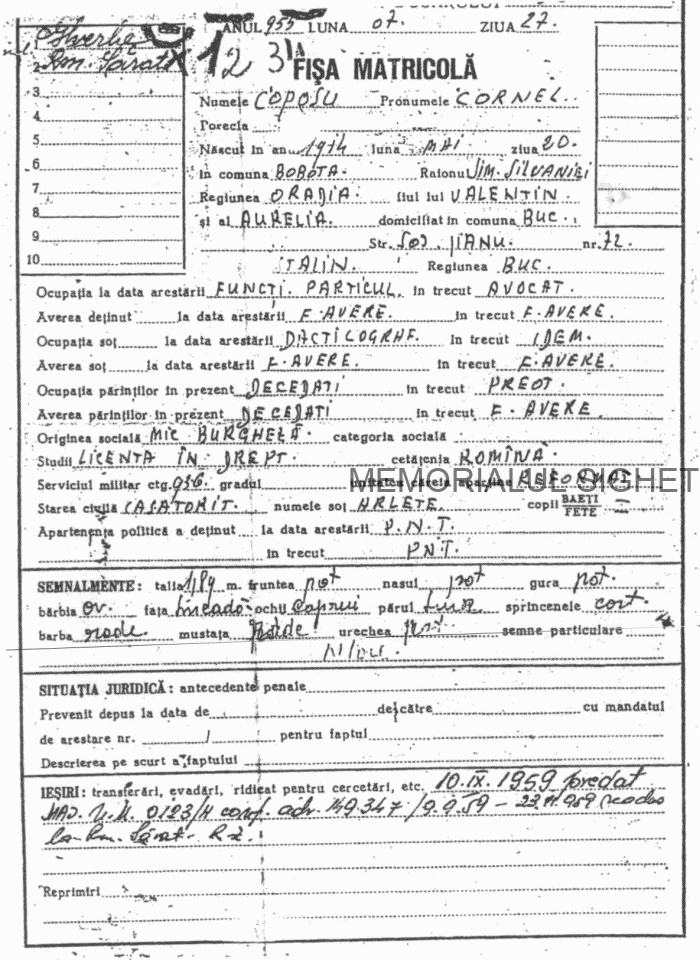 ANUL 955 LUNA 07. ZIUA 27.
Gherla
Rm. Sărat
1 2 3
FIŞA MATRICOLĂ
Numele COPOSU Pronumele CORNEL.
Porecla
Născut în an. 1914 luna MAI ziua 20.
în comuna BOBOTA. Raionul SIM. SILVANIEI
Regiunea ORADIA. fiul lui VALENTIN.
şi al AURELIA. domiciliat în comuna BUC.
Str. SOS. JIANU. nr. 72.
STALIN. Regiunea BUC.
3
4
5
6
7
8
9
10
Ocupaţia la data arestării FUNCŢI. PARTICUL. în trecut AVOCAT.
Averea deţinut la data arestării F. AVERE. în trecut F. AVERE.
Ocupaţia soţ la data arestării DACTILOGRAF. în trecut IDEM.
Averea soţ la data arestării F. AVERE. în trecut F. AVERE.
Ocupaţia părinţilor în prezent DECEDAŢI în trecut PREOT.
Averea părinţilor în prezent DECEDAŢI în trecut F. AVERE.
Originea socială MIC BURGHEZĂ. categoria socială
Studii LICENTA ÎN DREPT. cetăţenia ROMÎNĂ.
Serviciul militar ctg. 936. gradul unitatea căreia aparţine REFORMAT
MEMORIALUL SIGHET
Starea civilă CASATORIT. numele soţ ARLETE. copii BAEŢI FETE =
Apartenenţa politică a deţinut la data arestării P.N.T.
în trecut PNT.
SEMNALMENTE: talia 1,89 m. fruntea pot nasul pot gura pot.
bărbia ov. faţa ochii Caprui părul sprîncenele cort
barba rade mustaţa Rade urechea semne particulare
SITUAŢIA JURIDICĂ: antecedente penale
Prevenit depus la data de de către cu mandatul
de arestare nr. / pentru faptul
Descrierea pe scurt a faptului
IEŞIRI: transferări, evadări, ridicat pentru cercetări, etc. 10.IX.1959 predat
MAI. U.M. 0123/H conf. adr. 149.347/9.9.59 – 23 959 readus
la Rm. Sărat.
Reprimiri